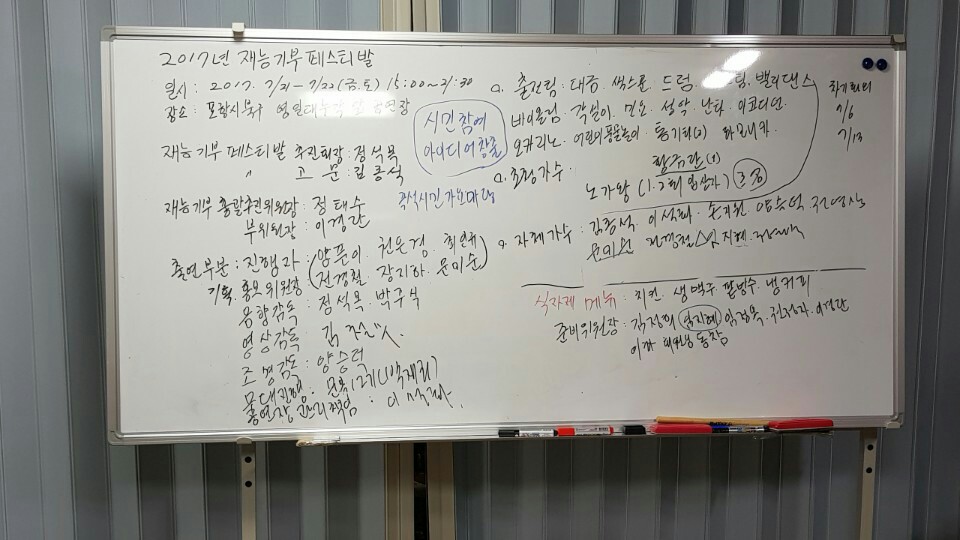 2017년 재능기부 페스티발
일시 : 2017. 7/21~7/22(금.토) 15:00~21:30
장소 : 포항시 북구 영일대
재능기부 페스티발 추진회장 : 정석목
" 고문 : 김종석
시민참여
아이디어창출
즉석시민가요마당
재능기부 총괄추진위원장 : 정태수
부위원장 : 이경란
출연부분 : 진행자 : 양푼이. 권은경.
기획. 홍보위원장 (전경철. 장지하. 윤미순)
음향감독 : 정석목. 박구식
영상감독 : 김
조명감독 : 양승력
무대진행 :
출연팀 : 대금. 색스폰. 드럼. 팅. 밸리댄스
바이올린. 각설이. 민요. 성악. 난타. 아코디언.
오카리나. 어린이풍물놀이 통기타(2) 하모니카.
합주단(1)
초청가수 :
노가왕 (1.2회 입상자) 3명
자체가수 : 김종석. 이석화. 손지원.
차기회의
7/6
7/13
식자재 메뉴 : 치킨. 생맥주. 팥빙수. 냉커피
준비위원장 : 김정희 임지혜 이경란
이하 회원 동참